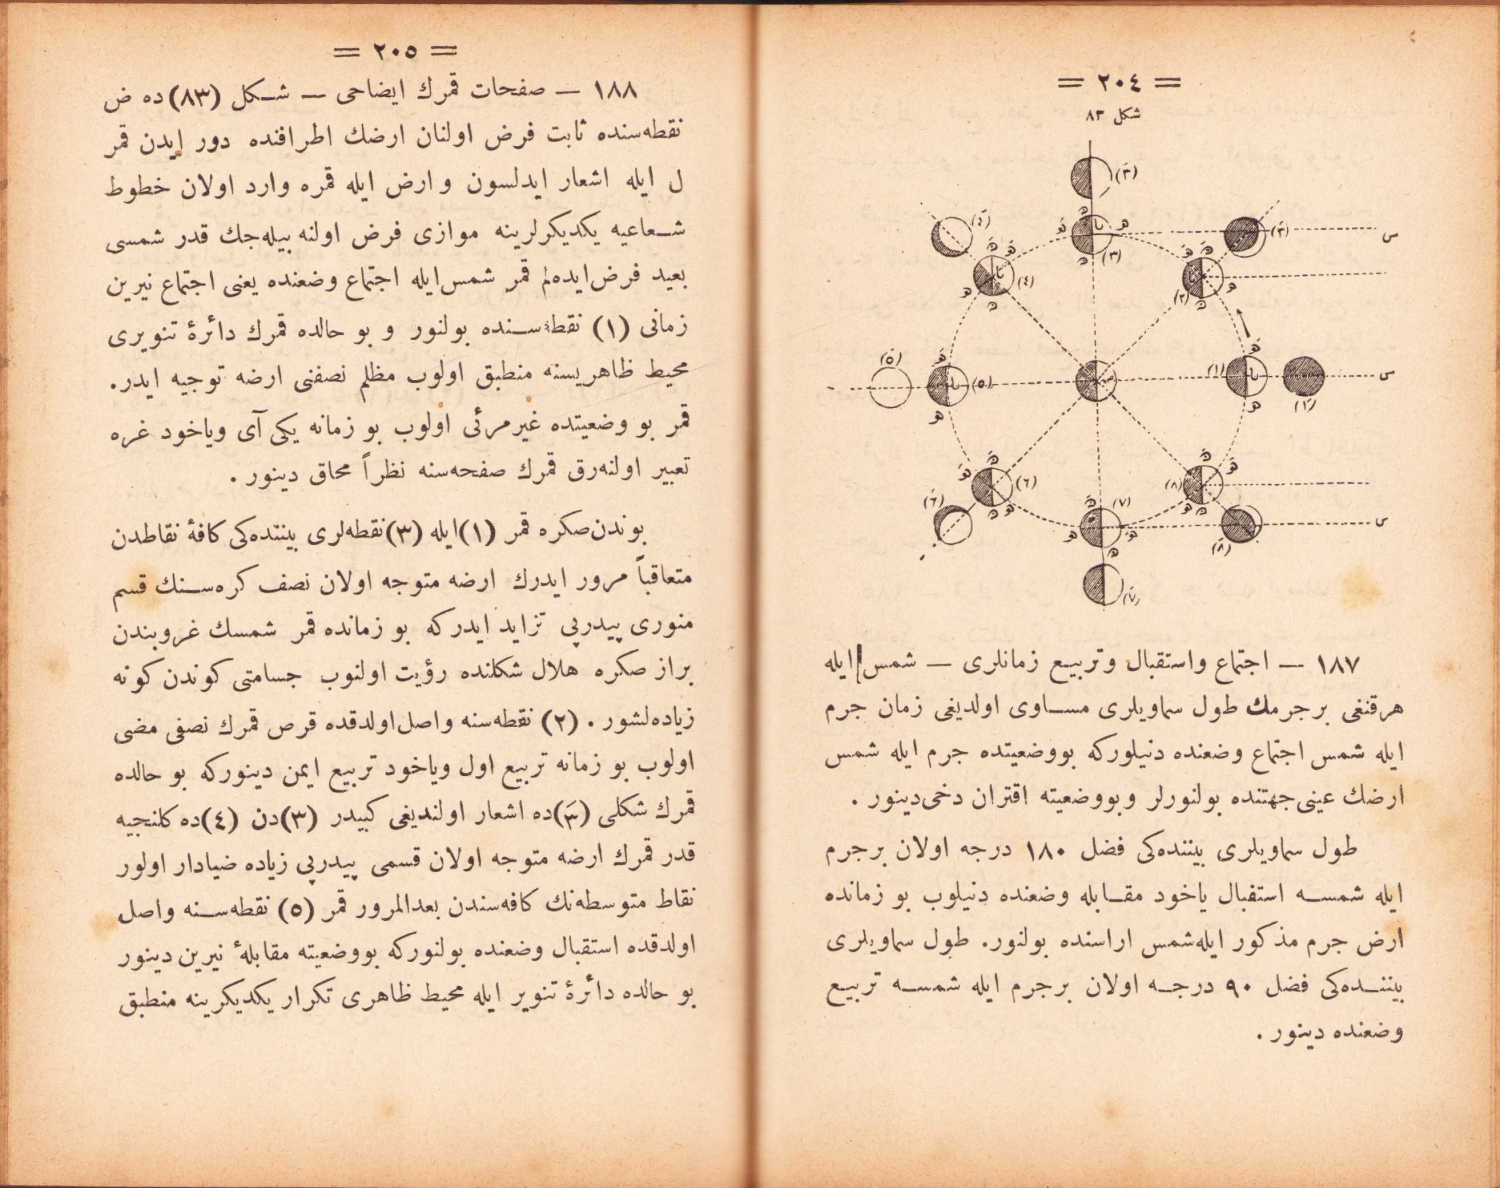 = ٢٠٤ =
شكل ٨٣
(٣َ)
(٤َ)
(٢َ)
س
(٣)
(٤)
(٢)
(٥َ)
(٥)
(١)
(١َ)
س
(٦)
(٧)
(٨)
(٦َ)
(٨َ)
س
(٧َ)
١٨٧ — اجتماع واستقبال وتربيع زمانلرى — شمس ايله
هرقنغى برجرمك طول سماويلرى مساوى اولديغى زمان جرم
ايله شمس اجتماع وضعنده دنيلوركه بووضعيتده جرم ايله شمس
ارضك عينى جهتنده بولنورلر وبووضعيته اقتران دخى دينور .
طول سماويلرى بيننده كى فضل ١٨٠ درجه اولان برجرم
ايله شمسه استقبال ياخود مقابله وضعنده دنيلوب بو زمانده
ارض جرم مذكور ايله شمس اراسنده بولنور. طول سماويلرى
بيننده كى فضل ٩٠ درجه اولان برجرم ايله شمسه تربيع
وضعنده دينور .
= ٢٠٥ =
١٨٨ — صفحات قمرك ايضاحى — شكل (٨٣) ده ض
نقطه سنده ثابت فرض اولنان ارضك اطرافنده دور ايدن قمر
ل ايله اشعار ايدلسون وارض ايله قمره وارد اولان خطوط
شعاعيه يكديكرلرينه موازى فرض اولنه بيله جك قدر شمسى
بعيد فرض ايده لم قمر شمس ايله اجتماع وضعنده يعنى اجتماع نيرين
زمانى (١) نقطه سنده بولنور و بو حالده قمرك دائرۀ تنويرى
محيط ظاهريسنه منطبق اولوب مظلم نصفنى ارضه توجيه ايدر.
قمر بو وضعيتده غيرمرئى اولوب بو زمانه يكى آى وياخود غره
تعبير اولنه رق قمرك صفحه سنه نظراً محاق دينور .
بوندن صكره قمر (١) ايله (٣) نقطه لرى بيننده كى كافۀ نقاطدن
متعاقباً مرور ايدرك ارضه متوجه اولان نصف كره سنك قسم
منورى پيدرپى تزايد ايدركه بو زمانده قمر شمسك غروبندن
براز صكره هلال شكلنده رؤيت اولنوب جسامتى كوندن كونه
زياده لشور . (٢) نقطه سنه واصل اولدقده قرص قمرك نصفى مضى
اولوب بو زمانه تربيع اول وياخود تربيع ايمن دينوركه بو حالده
قمرك شكلى (٣َ) ده اشعار اولنديغى كبيدر (٣) دن (٤) ده كلنجيه
قدر قمرك ارضه متوجه اولان قسمى پيدرپى زياده ضيادار اولور
نقاط متوسطه نك كافه سندن بعدالمرور قمر (٥) نقطه سنه واصل
اولدقده استقبال وضعنده بولنوركه بووضعيته مقابلۀ نيرين دينور
بو حالده دائرۀ تنوير ايله محيط ظاهرى تكرار يكديكرينه منطبق